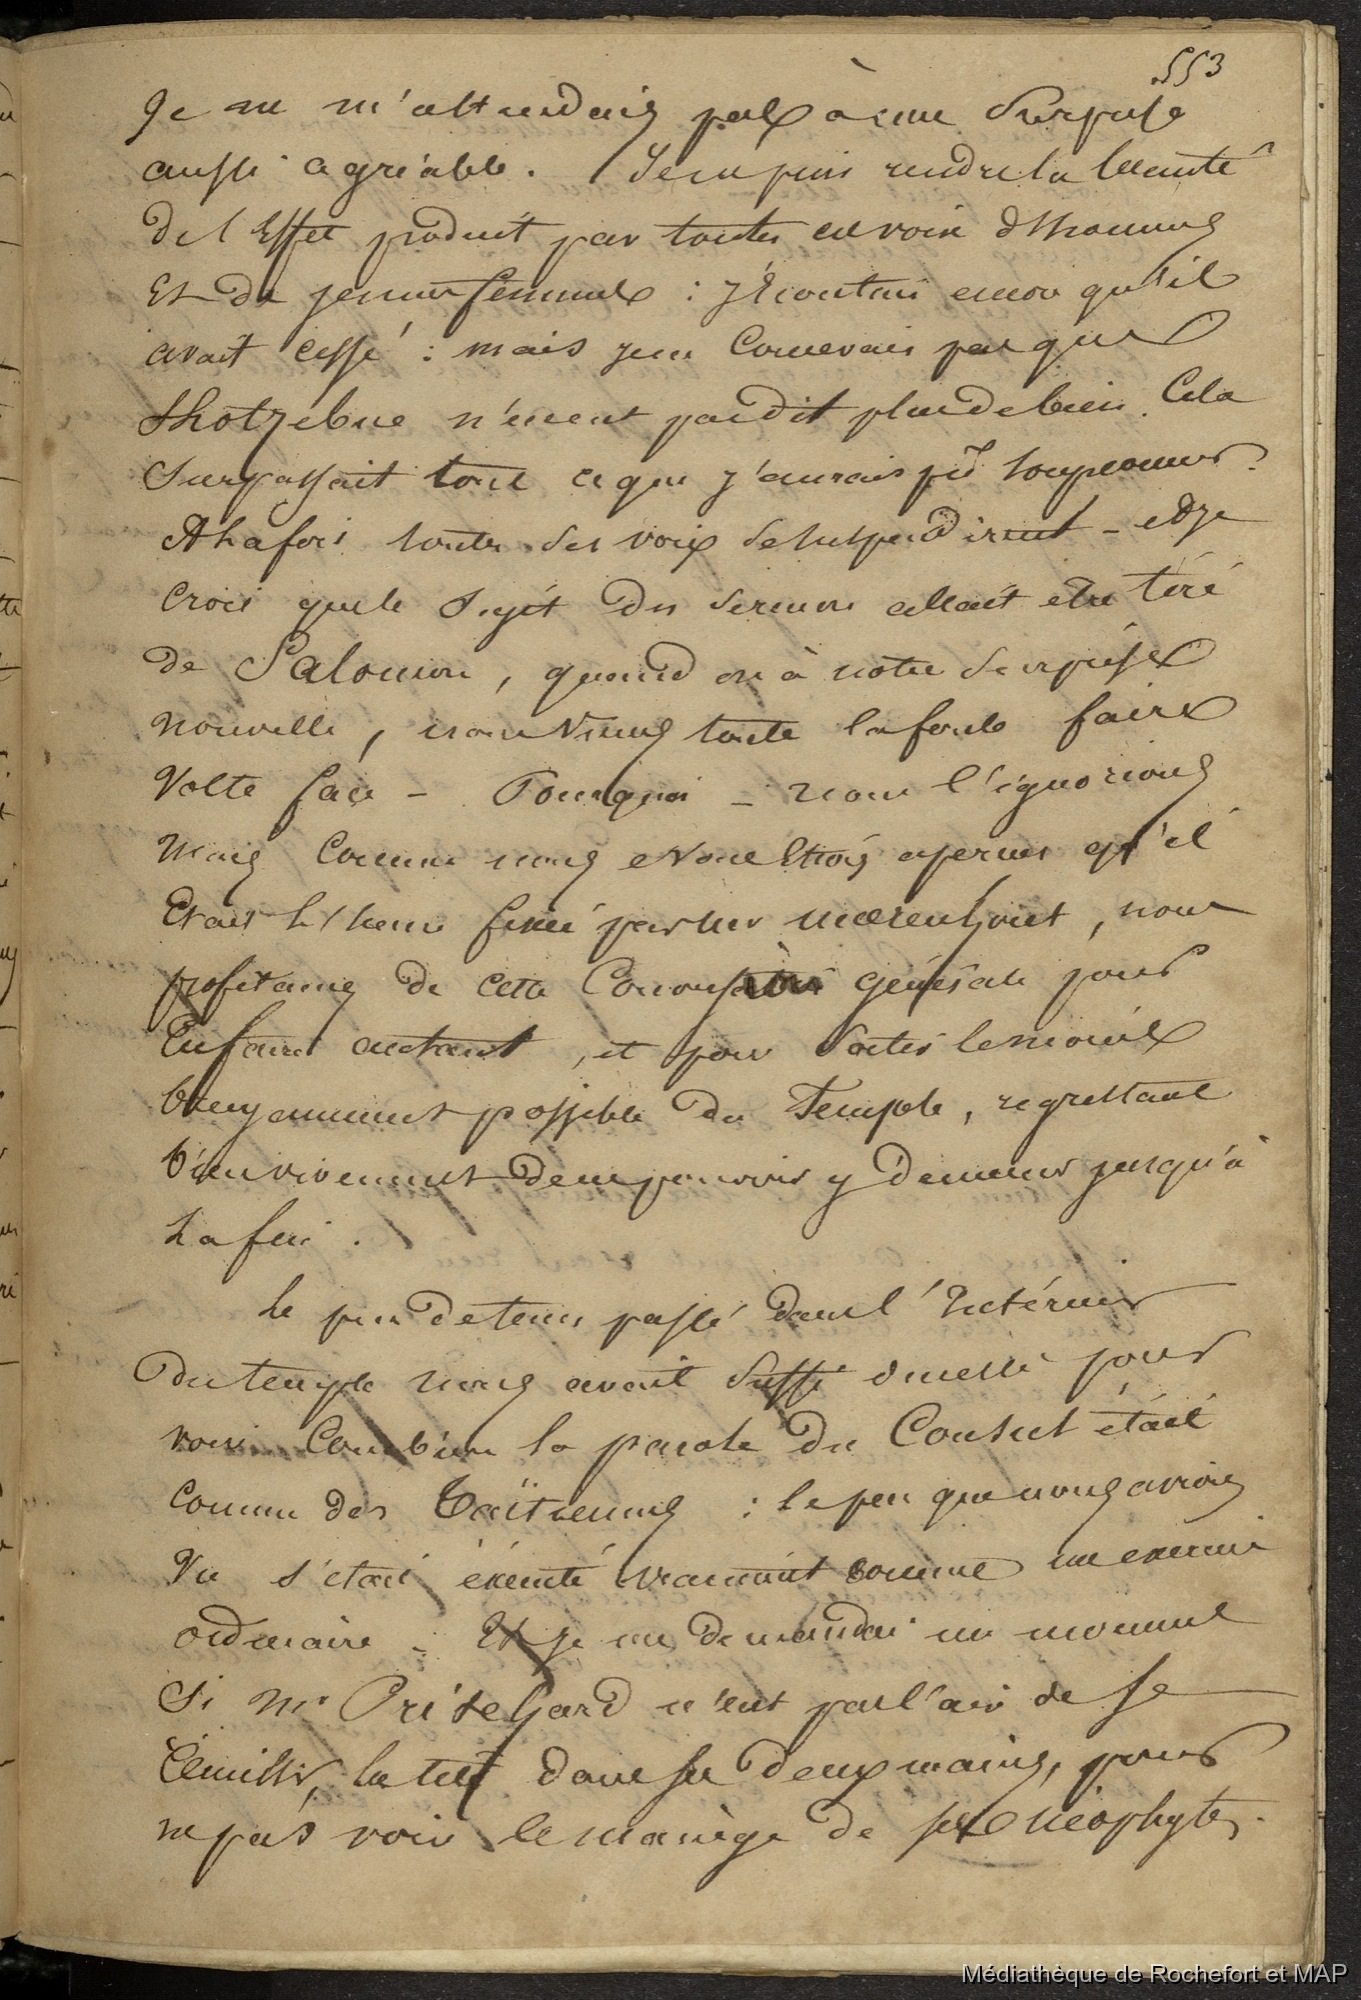 553
Je ne m'attendais pas à une Surprise
aussi agréable. Je ne puis rendre la beauté
de l'Effet produit par toutes ces voix d'hommes
Et de jeunes femmes : j'Ecoutais encor qu'il
avait cessé : mais je ne Concevais pas que
Khotzebue n'en eut pas dit plus de bien. Cela
Surpassait tout ce que j'aurais pû soupconner.
A la fois toutes ses voix se suspendirent - et je
Crois que le Sujet du sermon allait être tiré
de Salomon, quand on à notre Surprise
nouvelle, nous vimes toute la foule faire
Volte face - Pourquoi - nous l'ignorions
Mais Comme nous étions apercus qu'il
Etait l'heure fixée par Mr Mœrenhout, nous
profitames de cette Conversation générale pour
En faire autant, et pour Sortir le moins
bruyamment possible du Temple, regrettant
bien vivement de ne pouvoir y demeurer jusqu'à
La fin.
Le peu de tems passé dans l'Intérieur
Du temple nous avait Suffi pour
voir Combien la parole du Consul était
Connue des Taïtiennes : le peu que nous avions
Vu s'était éxécuté vraiment comme un exercice
ordinaire - Et je me demandai un moment
Si Mr Pritchard n'eut pas l'air de se
la tête dans ses deux mains, pour
ne pas voir le manège de ses néophytes.
Médiathèque de Rochefort et MAP